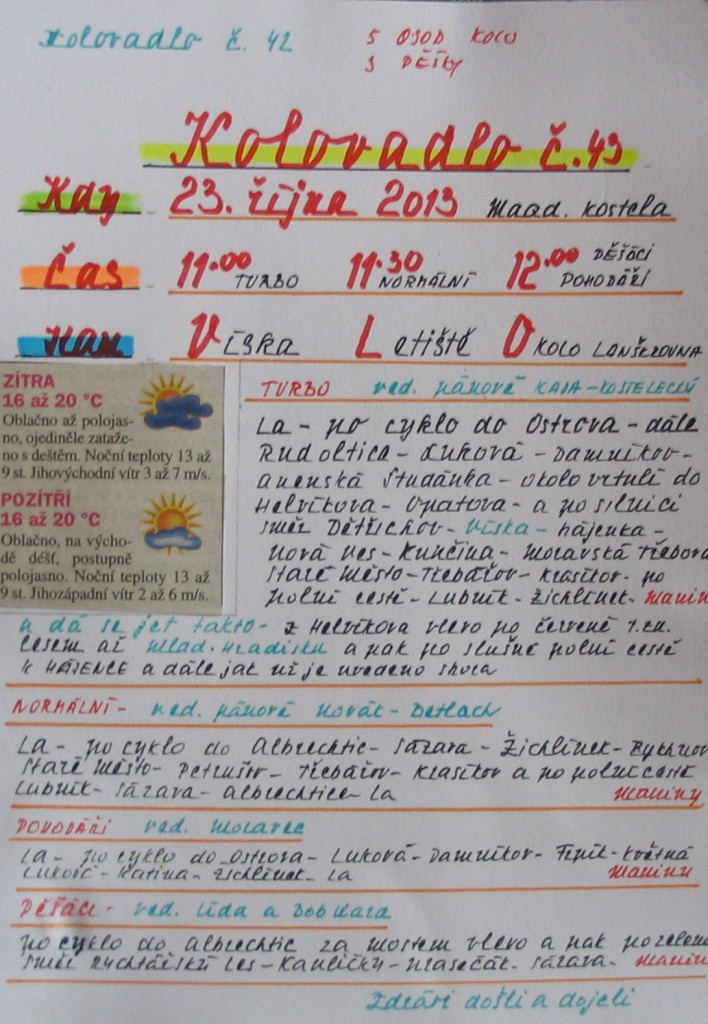 Kolovadlo č. 42
5 OSOB KOLO
3 PĚŠKY
Kolovadlo č. 43
Kdy 23. října 2013 Maad. kostela
Čas 11.00 TURBO 11.30 NORMÁLNÍ 12.00 PĚŠÁCI POHODÁŘI
Kam Víska Letiště Okolo LANŠKROUNA
ZÍTRA
16 až 20 °C
Oblačno až polojas-
no, ojediněle zataže-
no s deštěm. Noční teploty 13 až
9 st. Jihovýchodní vítr 3 až 7 m/s.
POZÍTŘÍ
16 až 20 °C
Oblačno, na výcho-
dě déšť, postupně
polojasno. Noční teploty 13 až
9 st. Jihozápadní vítr 2 až 6 m/s.
TURBO ved. pánové KAJA-KOSTELECKÝ
La - po cyklo do Ostrova - dále
Rudoltice - Luková - Damníkov -
anenská Studánka - okolo vrtulí do
Helvíkova - Opatova - a po silnici
směr Dětřichov - Víska - hájenka -
nová ves - Kunčina - Moravská Třebová
Staré Město - Třebařov - Krasíkov - po
polní cestě - Lubník - Žichlínek - maniny
a dá se jet takto - z Helvíkova vlevo po červené t.zn.
lesem až Mlad. Hradisku a pak po slušné polní cestě
k HÁJENCE a dále jak už je uvedeno shora
NORMÁLNÍ - ved. pánové Novák - Detlach
La - po cyklo do Albrechtic - Sázava - Žichlínek - Rychnov
Staré Město - Petrušov - Třebařov - Krasíkov a po polní cestě
Lubník - Sázava - Albrechtice - La maniny
POHODÁŘI ved. Moravec
La - po cyklo do Ostrova - Luková - Damníkov - Trpík - Květná
Luková - Ratina - Žichlínek - La maniny
Pěšáci - ved. Lída a Bob Kaza
po cyklo do Albrechtic za mostem vlevo a pak po zelené
směr Rychtářský Les - Kapličky - Krasečák - Sázava - maniny
Zdeári došli a dojeli